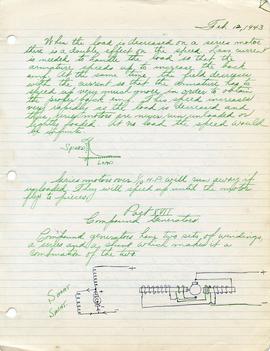 Feb. 12, 1943
When the load is decreased on a series motor
there is a double effect on the speed. Less current
is needed to handle the load so that the
armature speeds up to increase the back
emf. At the same time the field decreases
with the current so that the armature has to
speed up very much more in order to obtain
the proper back emf. This speed increases
very rapidly as the load is decreased and
thus series motors are never run unloaded or
lightly loaded. At no load the speed would
be infinite.
SPEED
LOAD
Series motors over H.P. will run away if
unloaded. They will speed up until the motor
flys to pieces.
Part VIII
Compound Generators
Compound generators have two sets of windings,
a series and a shunt which makes it a
combination of the two.